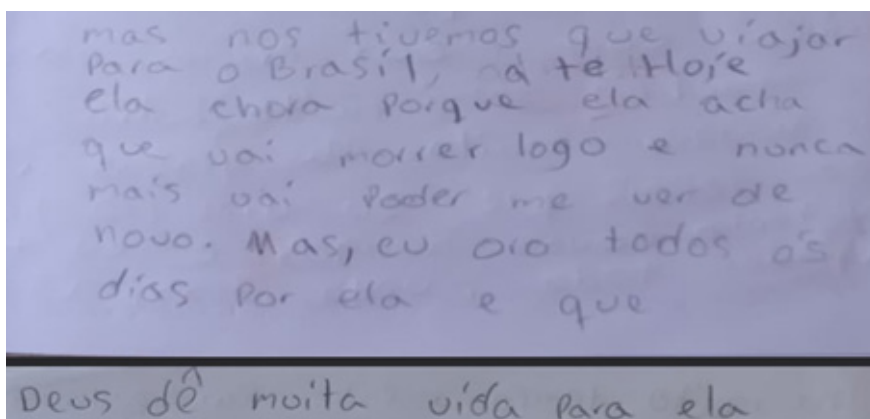 mas nos tivemos que viajar
Para o Brasil, a te Hoje
ela chora Porque ela acha
que vai morrer logo e nunca
mais vai Poder me ver de
novo. Mas, eu oro todos os
dias Por ela e que
Deus dê muita vida Para ela